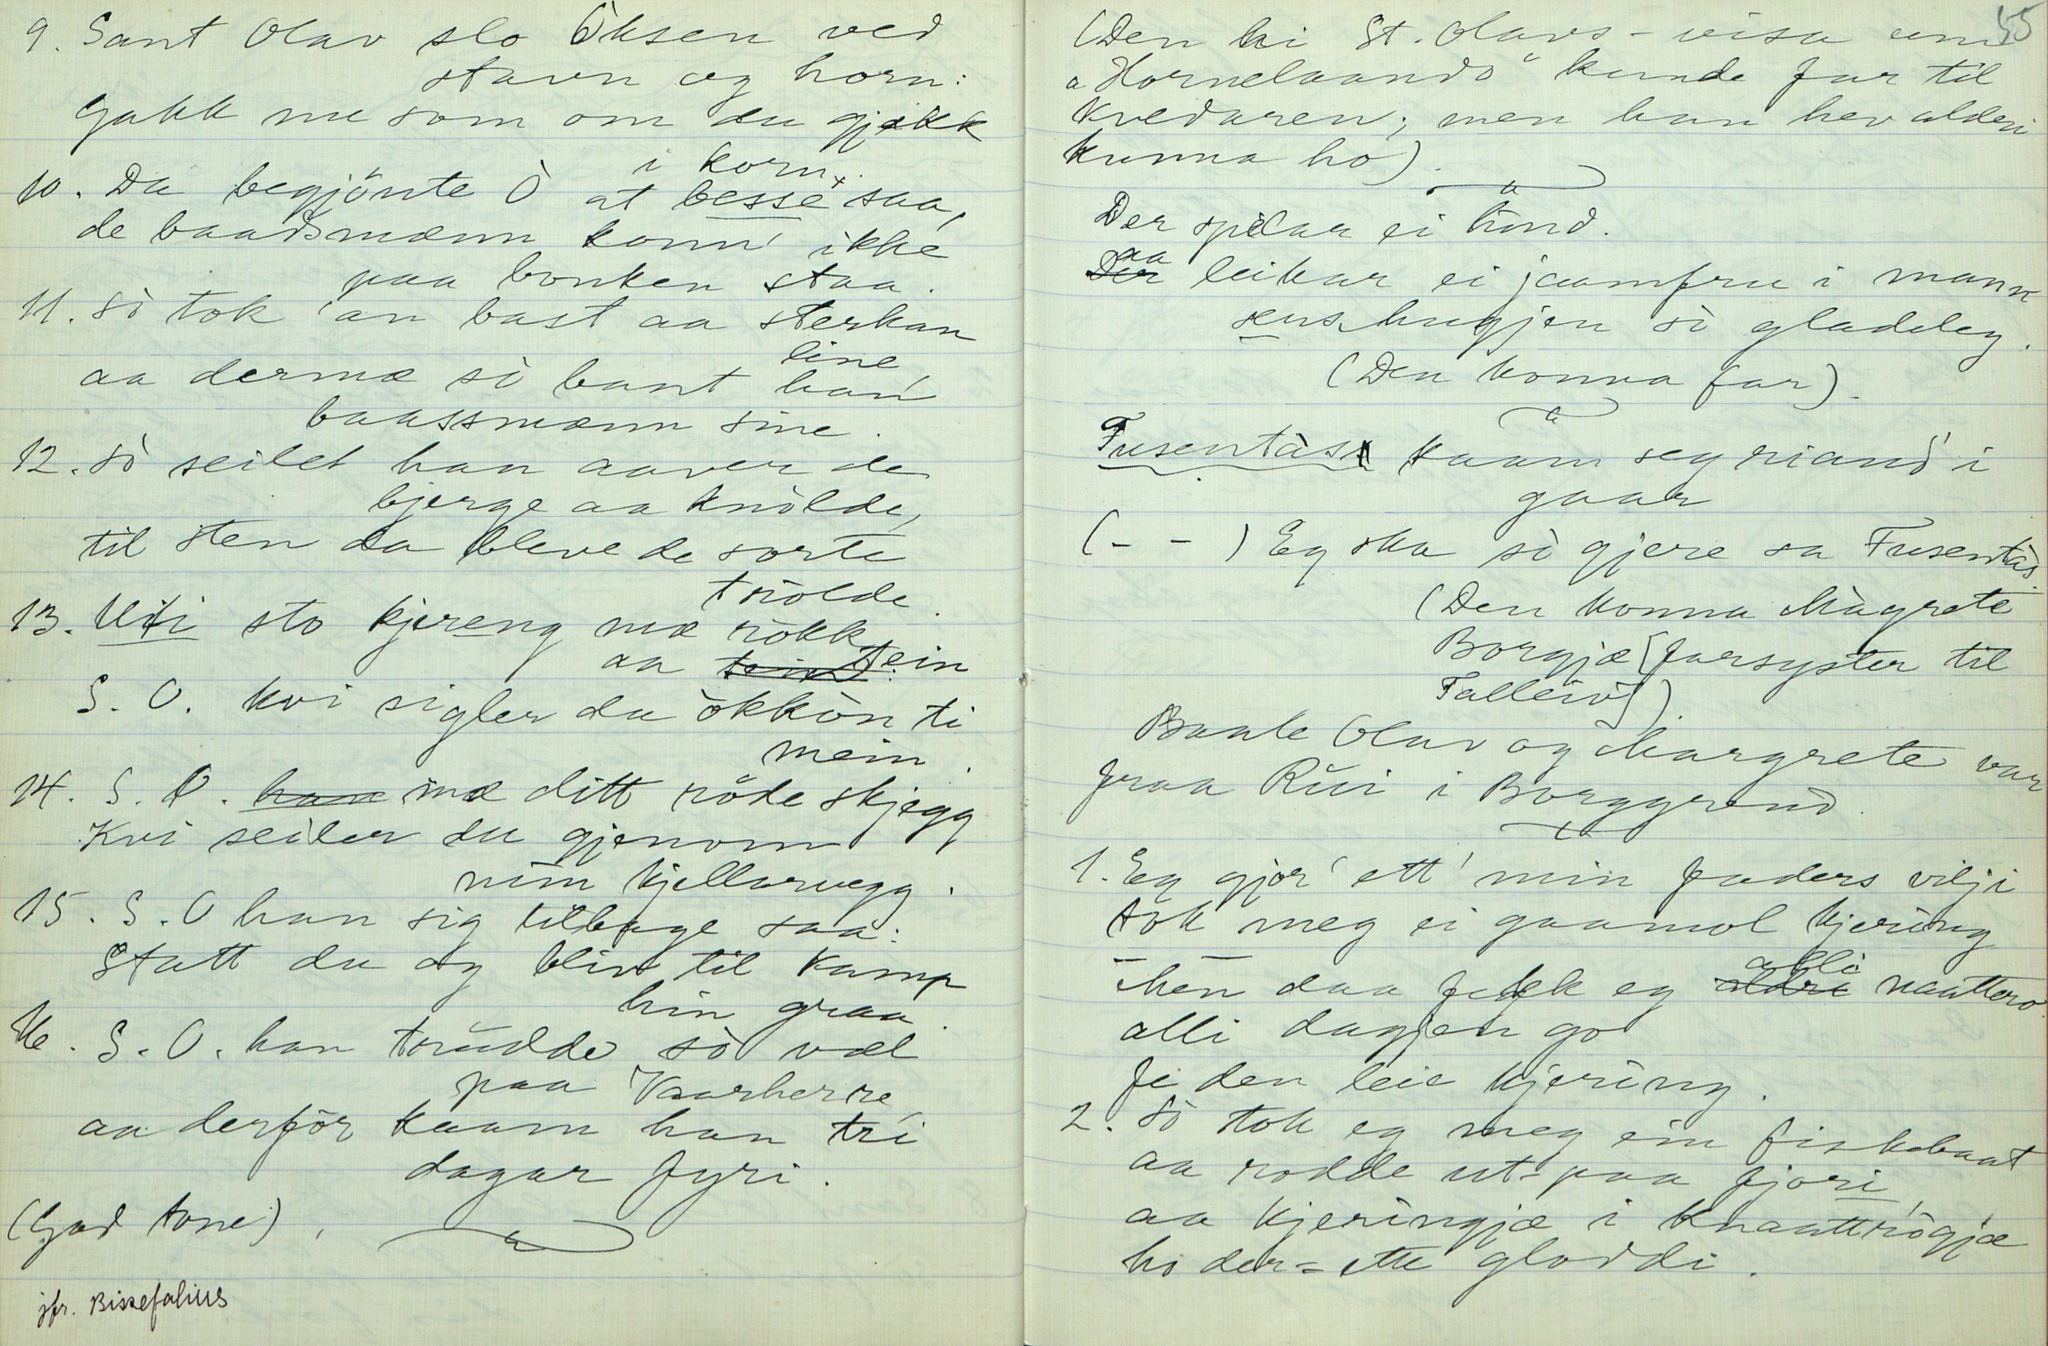 9. Sant Olav slo Öksen ved
stavn og horn:
Gakk nu som om du gjekk
i korn.
10. Da begjönte Ò at besse + saa,
de baadsmænn konn' ikke
paa bonken staa.
11. Sò tok 'an bast aa sterkan
line,
aa dermæ sò bant han'
baassmænn sine.
12. Sò seilet han aaver de
bjerge aa knòlde,
til sten da bleve de sorte
tròlde.
13. Uti sto kjereng mæ ròkk
aa tein
S. O. kvi sigler du òkkòn ti
mein.
14. S. O. han mæ ditt röde skjegg
Kvi seiler du gjenom
min kjellarvegg.
15. S. O han sig tilbage saa:
Statt du og bliv til Kamp
hin graa.
16. S. O. han trudde sò væl
paa Vaarherre
aa derför kaam han tri
dagar fyri.
(God tone).
jfr. Bissefalius
55
(Den hi St. Olavs-visa um
"Hornelaando" kunde far til
Kvedaren; men han hev alderi
kunna ho).
Der spelar ei hind.
Der aa leikar ei jaamfru i mann
sens hugjen sò gladeleg.
(Den konna far).
Fusentàst kaam seg riand' i
gaar
(- -) Eg ska sò gjere sa Fusentàs.
(Den konna Màgrete
Borgjæ [farsyster til
Talleiv]).
Baale Olav og Margrete var
fraa Rui i Borggrend.
1. Eg gjor' ett' min faders vilji
tok meg ei gaamol kjering
Men daa fekk eg aldri alli naattero
alli dagjen go
fe den leie kjering.
2. Sò tok eg meg ein fiskebaat
aa rodde ut-paa fjori
aa kjeringjæ i knaattrògjæ
ho der-ette gloddi.